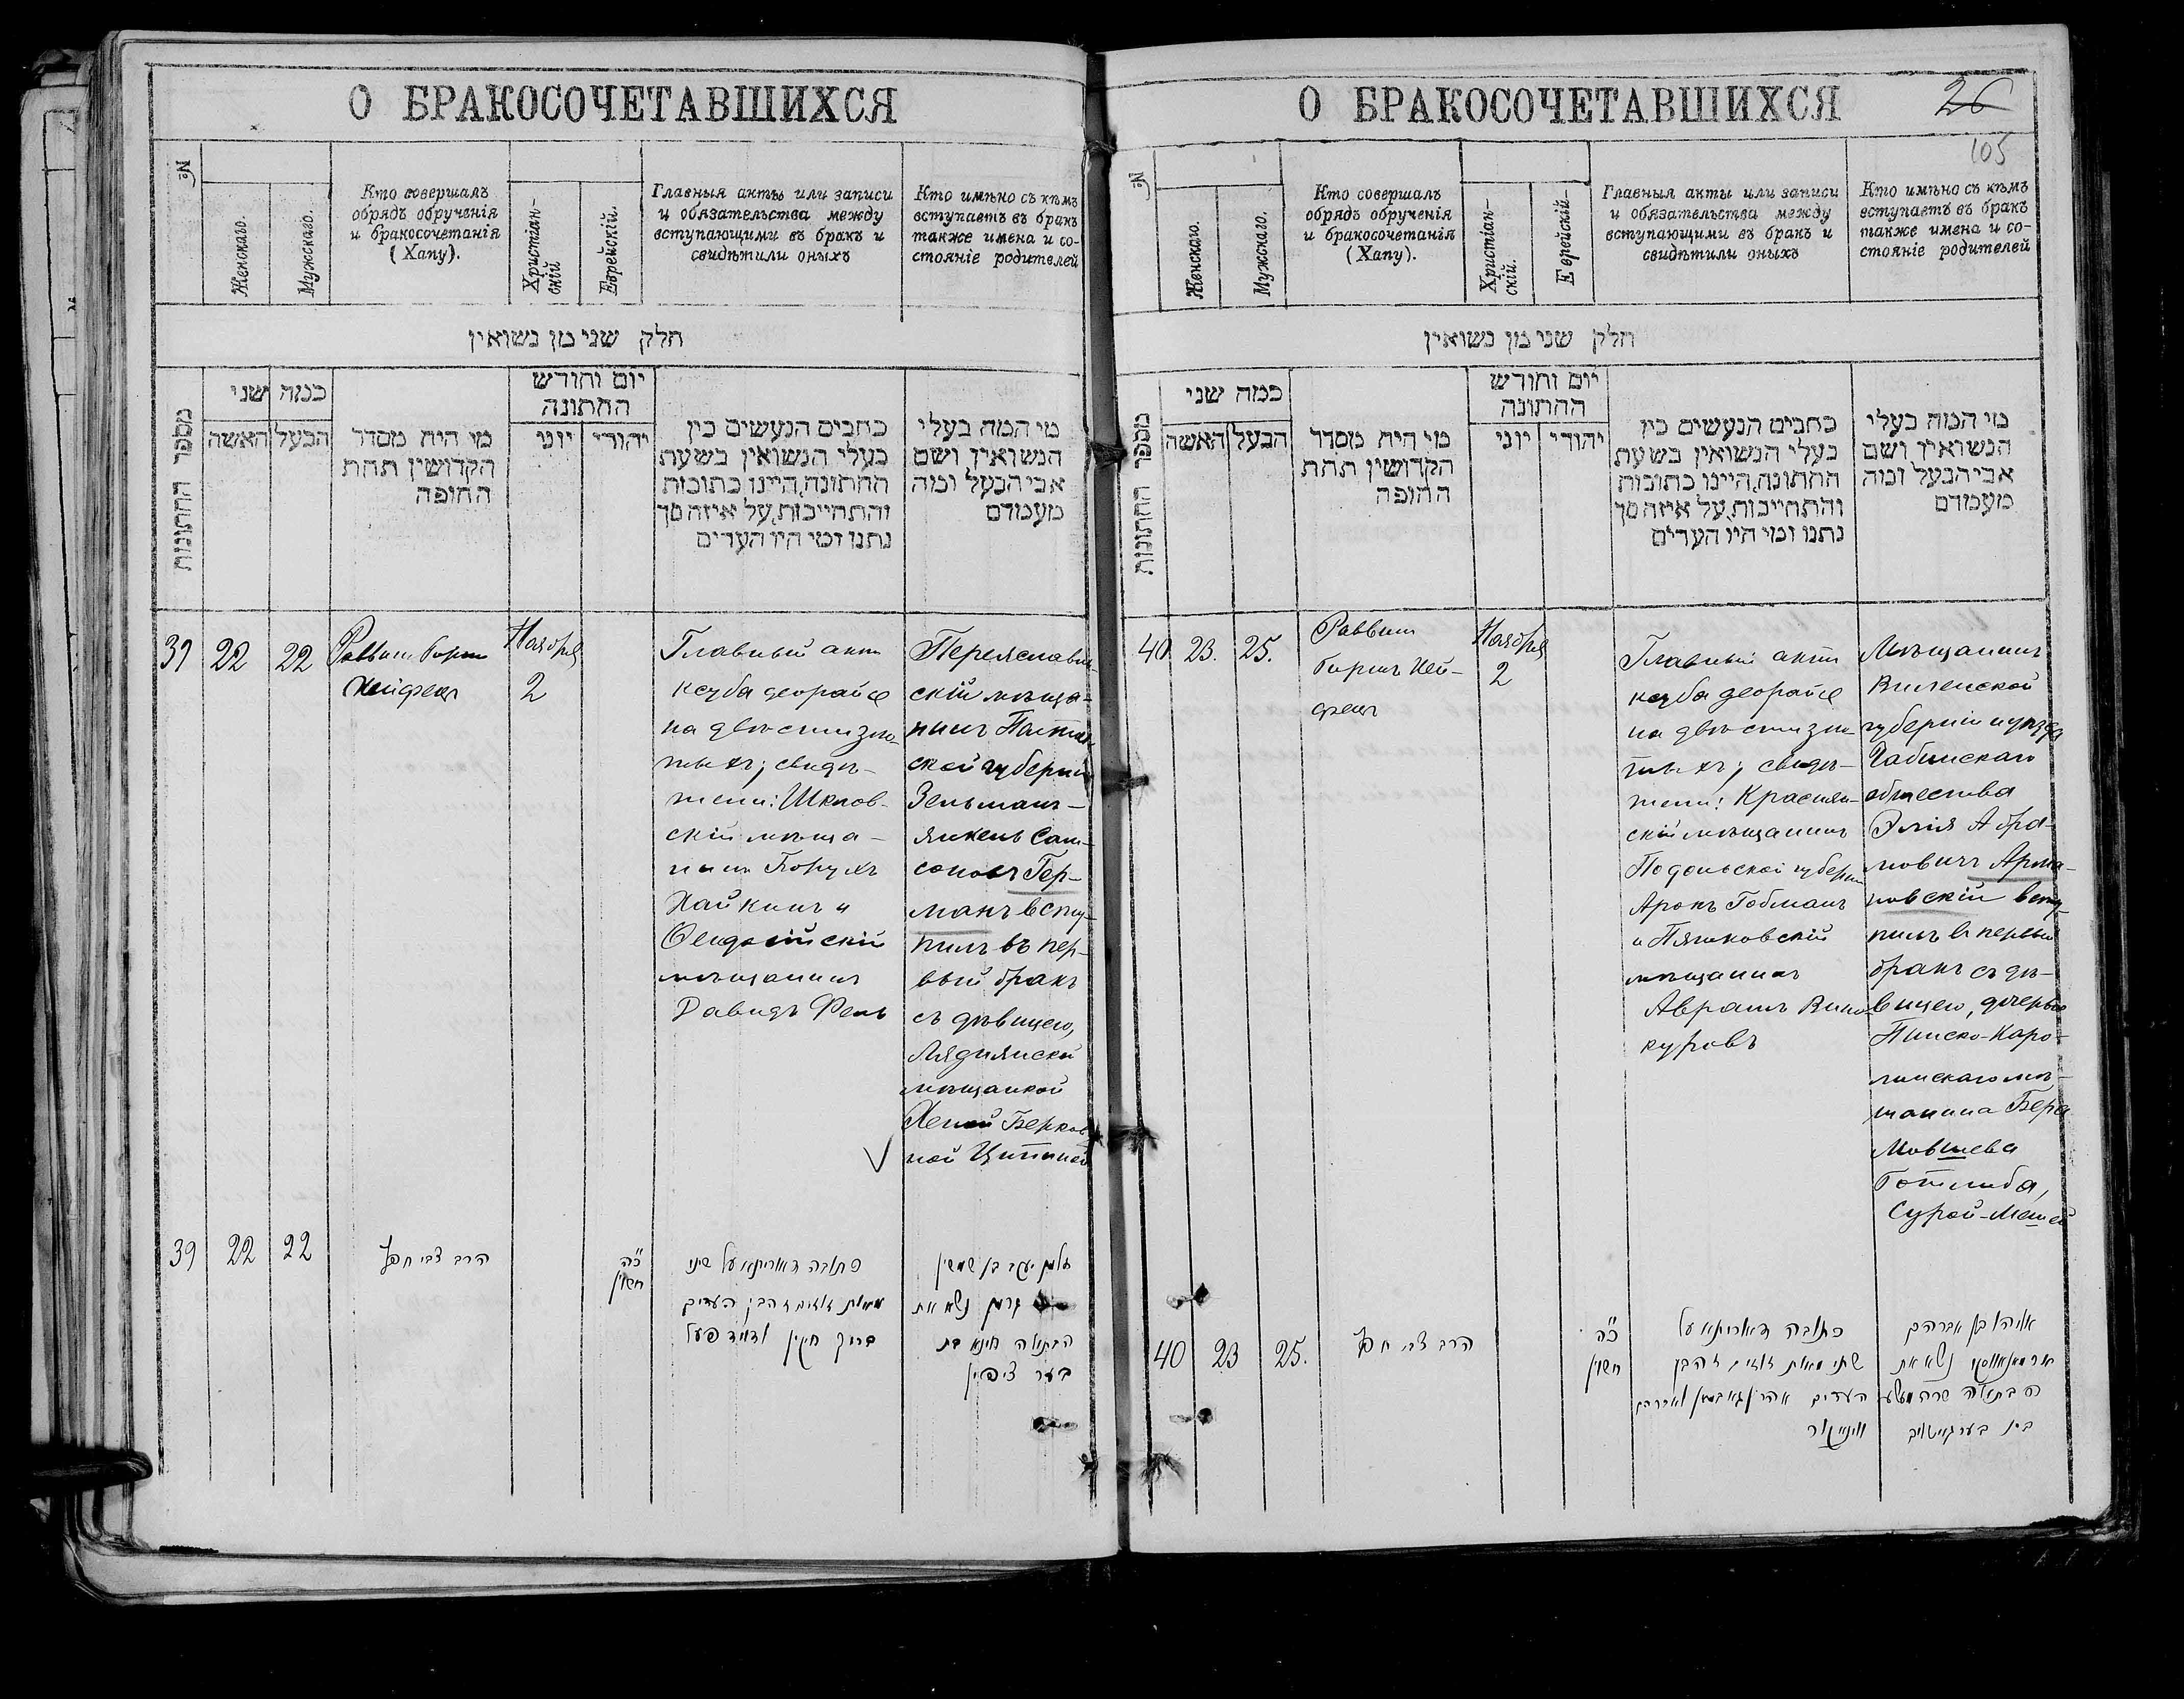 О БРАКОСОЧЕТАВШИХСЯ
№
Женскаго.
Мужскаго.
Кто совершалъ
обрядъ обрученія
и бракосочетанія
(Хапу).
Христіан-
скій
Еврейскій.
Главныя акты или записи
и обязательства между
вступающими въ бракъ и
свидѣтили оныхъ
Кто имѣно съ кѣмъ
вступаетъ въ бракъ
также имена и со-
стояніе родителей
חלק שני מן נשואין
מספר החתונות
כמה שני
הבעל
האשה
מי היה מסדר
הקדושין תחת
החופה
יום וחודש
החתונה
יוני
יהודי
כתבים הנעשים בין
בעלי הנשואין בשעת
החתונה, היינו כתובות
והתחייבות, על איזה סך
נתנו ומי היו העדים
מי המה בעלי
הנשואין ושם
אבי הבעל ומה
מעמדם
39 22 22
Раввинъ Гиршъ
Хейфецъ
Ноября
2
Главный актъ
ксуба деорайсе
на двѣсти зло-
тыхъ; свидѣ-
тели: Шклов-
скій мѣща-
нинъ Борухъ
Хайкинъ и
Ѳеодосійскій
мѣщанинъ
Давидъ Фель
Переяслав-
скій мѣща-
нинъ Полтав-
ской губерніи
Зельманъ-
Янкель Сам-
соновъ Гер-
манъ всту-
пилъ въ пер-
вый бракъ
съ дѣвицею,
мѣщанкой
Хеной Берков-
ной Ципиной
39 22 22
הרב צבי חפץ
כ"ה
חשון
כתובה דאוריתא על שתי
מאות זוזים זהבן העדים
ברוך חיקין ודוד פעל
זלמן יעקב בן שמשון
גרמן נשא את
הבתולה חינא בת
בער ציפין
О БРАКОСОЧЕТАВШИХСЯ
26
105
№
Женскаго.
Мужскаго.
Кто совершалъ
обрядъ обрученія
и бракосочетанія
(Хапу).
Христіан-
скій.
Еврейскій-
Главныя акты или записи
и обязательства между
вступающими въ бракъ и
свидѣтили оныхъ
Кто имѣно съ кѣмъ
вступаетъ въ бракъ
также имена и со-
стояніе родителей
חלק שני מן נשואין
מספר החתונות
כמה שני
הבעל
האשה
מי היה מסדר
הקדושין תחת
החופה
יום וחודש
החתונה
יוני
יהודי
כתבים הנעשים בין
בעלי הנשואין בשעת
החתונה, היינו כתובות
והתחייבות, על איזה סך
נתנו ומי היו העדים
מי המה בעלי
הנשואין ושם
אבי הבעל ומה
מעמדם
40 23. 25.
Раввинъ
Гиршъ Хей-
фецъ
Ноября
2
Главный актъ
ксуба деорайсе
на двѣсти зло-
тыхъ; свидѣ-
тели: Краснян-
скій мѣщанинъ
Подольской губерніи
Аронъ Гобманъ
и Пятковскій
мѣщанинъ
Авраамъ Вино-
куровъ
Мѣщанинъ
Виленской
губерніи и уѣзда
общества
Элія Абра-
мовичъ Арма-
новскій всту-
пилъ въ первый
бракъ съ дѣ-
вицею, дочерью
Пинско-Каро-
линскаго мѣ-
щанина Бера
Мовшева
Готлиба,
Сурой-Мешей
40 23 25.
הרב צבי חפץ
כ"ה
חשון
כתובה דאוריתא על
שתי מאות זוזים זהבן
העדים אהרן גאבמאן ואברהם
אליהו בן אברהם
ארמאנאווסקי נשא את
הבתולה שרה